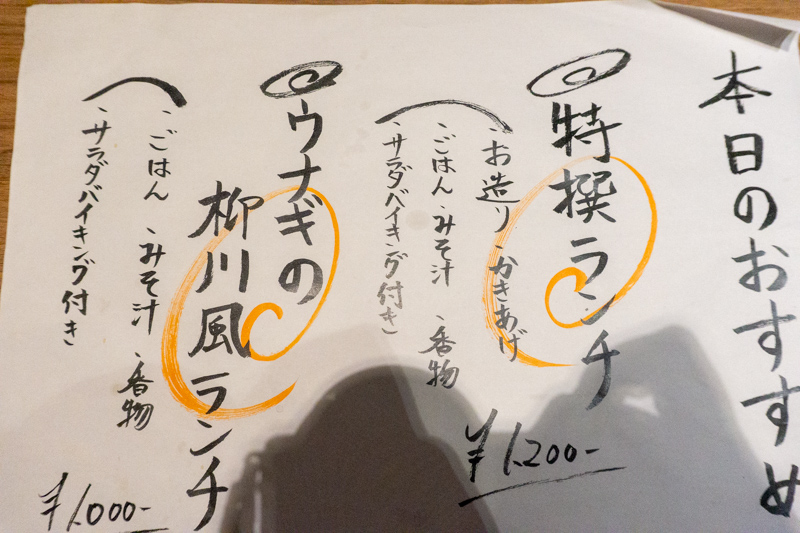 本日のおすすめ
特撰ランチ
・お造り ・かきあげ
・ごはん ・みそ汁 ・香物
・サラダバイキング付き
¥1,200-
ウナギの
柳川風ランチ
・ごはん ・みそ汁 ・香物
・サラダバイキング付き
¥1,000-